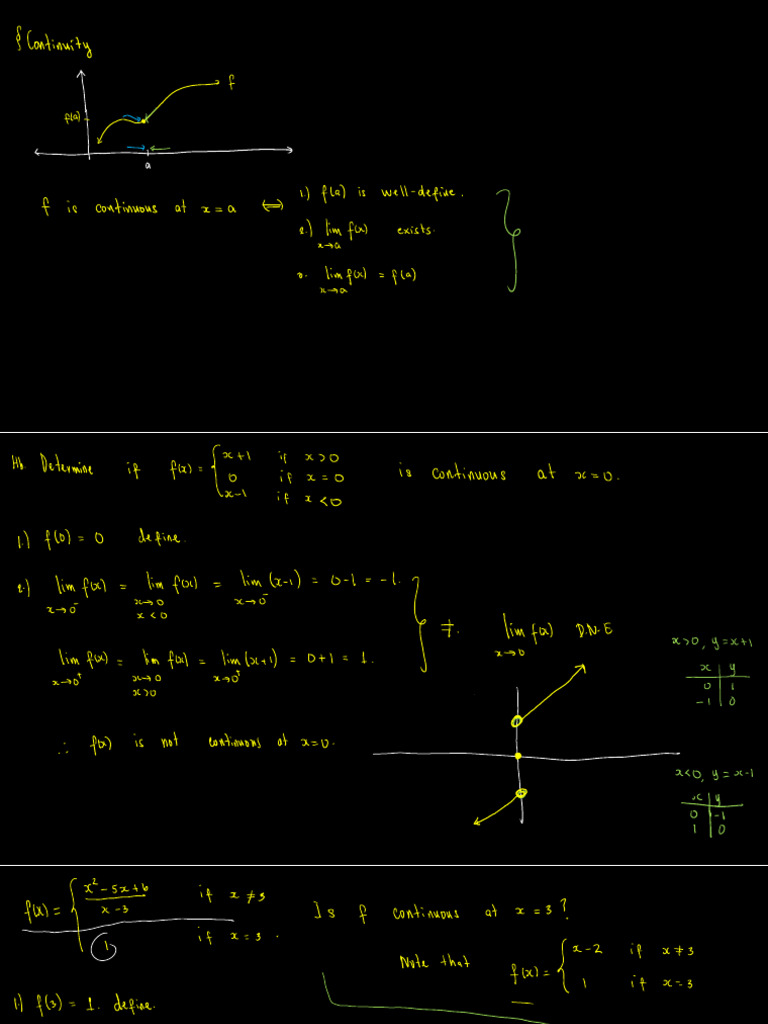 § Continuity
f
f(a)
a
f is continuous at x = a ⟺ 1.) f(a) is well-define.
2.) lim x→a f(x) exists.
3. lim x→a f(x) = f(a)
Determine if f(x) = { x+1 if x>0
0 if x = 0
x-1 if x<0
is continuous at x=0.
1.) f(0) = 0 define.
2.) lim x→0⁻ f(x) = lim x→0 x<0 f(x) = lim x→0⁻ (x-1) = 0-1 = -1.
≠. lim x→0 f(x) D.N.E
lim x→0⁺ f(x) = lim x→0 x>0 f(x) = lim x→0⁺ (x+1) = 0+1 = 1.
∴ f(x) is not continuous at x=0.
x>0, y=x+1
x y
0 1
-1 0
x<0, y = x-1
x y
0 -1
1 0
f(x) = { x²-5x+6 / x-3 if x ≠ 3
1 if x = 3.
Is f continuous at x = 3?
Note that f(x) = { x-2 if x ≠ 3
1 if x = 3
1) f(3) = 1. define.